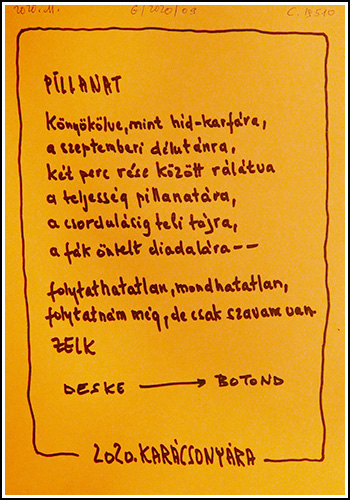 2020.11. 6/2020/09 C.18510
PILLANAT
Könyökölve, mint hid-karfára,
a szeptemberi délutánra,
két perc rése között rálátva
a teljesség pillanatára,
a csordulásig teli tájra,
a fák önkelt diadalára--
folytathatatlan, mondhatatlan,
folytatnám még, de csak szavam van.
ZELK
DESKE → BOTOND
2020. KARÁCSONYÁRA